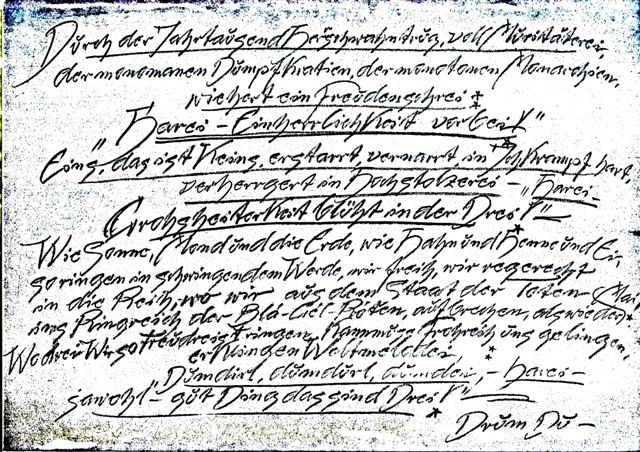 Durch der Jahrtausend Herschwahntrug, voll Muritäterei,
der monomanen Dumpfkratien, der monotonen Monarchien,
wiehert ein Freudenschrei:
"Harei – Einherrlichkeit vorbei!"
Eins, das ist Keins, erstarrt, vernarrt, in Ichkrampf hart,
verherrgert in Hochstolzerei – "Harei –
Frohgheiterkeit blüht in der Drei!" –
Wie Sonne, Mond und die Erde, wie Hahn und Henne und Ei
so ringen in schwingendem Werde, wir frech, wir regerecht
in die Reih, wo wir aus dem Staat der Toten
ins Ringreich der Blä-Gel-Röten, aufbrechen, als wieder Mai
Wo drei Wir so freudreis ringen, Kann Frohreich uns gelingen,
erklingen Weltmelodei,
Dumdirl, dumdurl, dumdei, – harei –
jawohl! – gut Ding das sind Drei!" –
Drum Du –